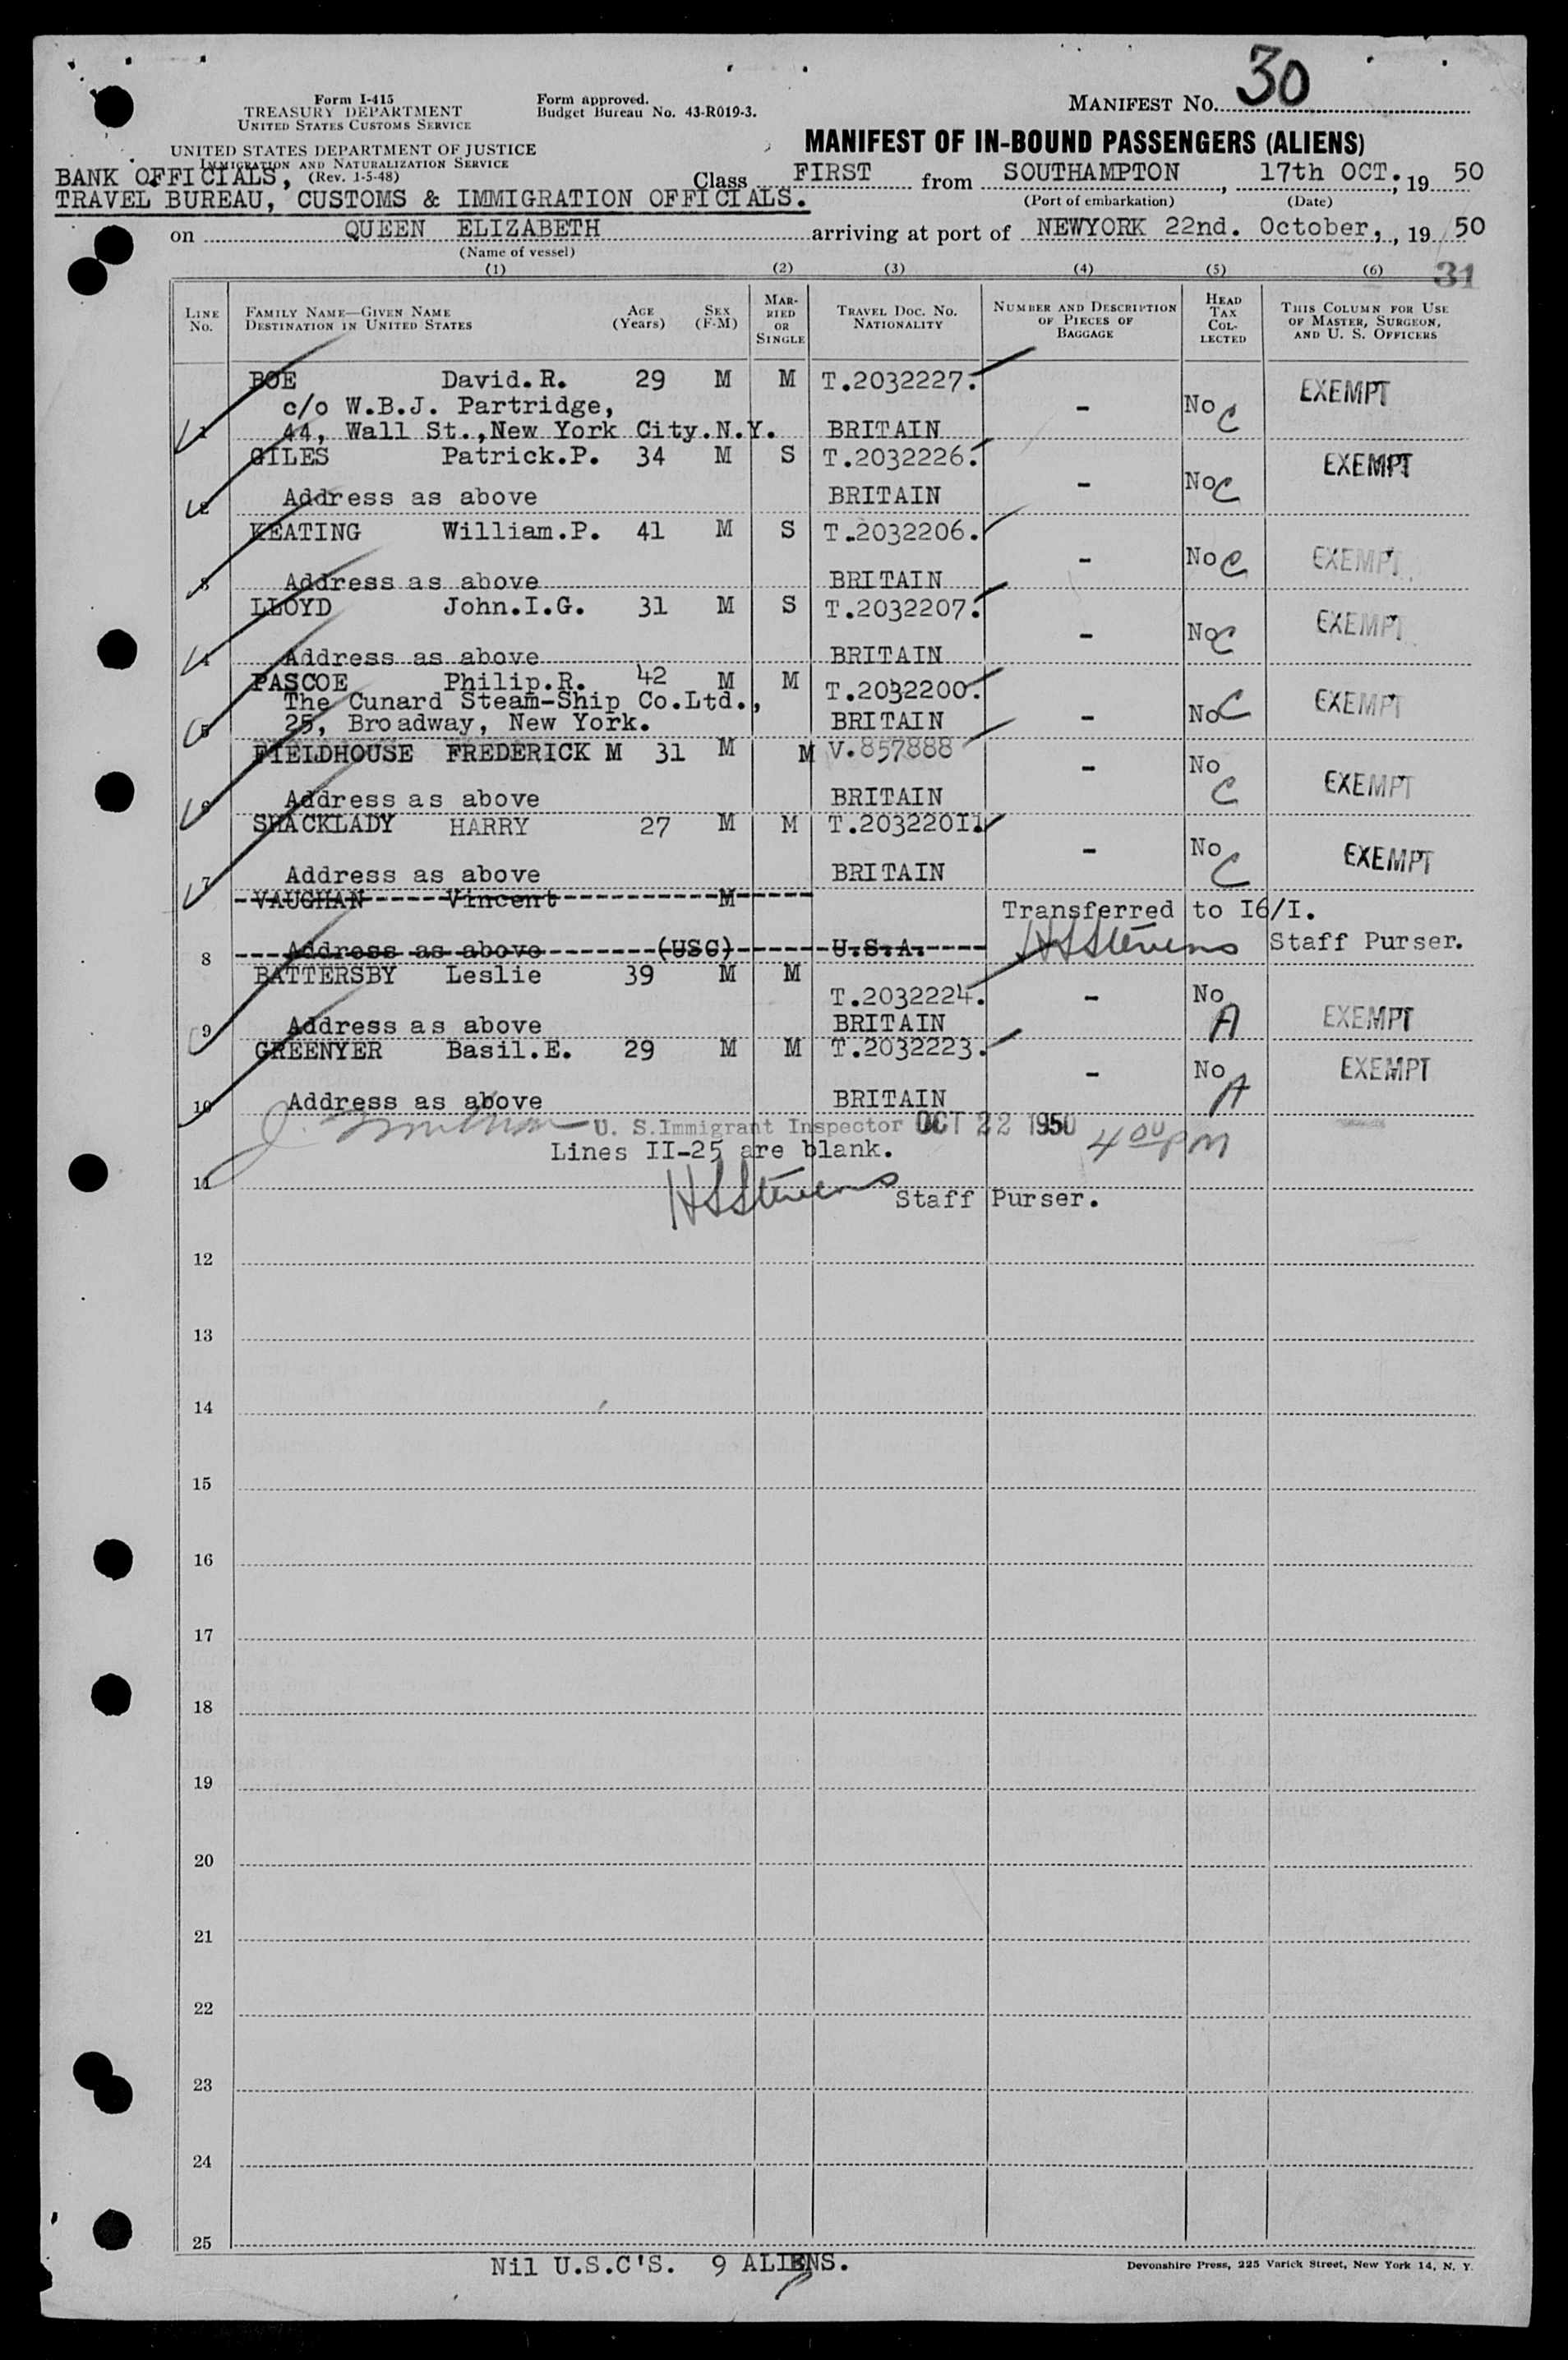 Form I-415
TREASURY DEPARTMENT
UNITED STATES CUSTOMS SERVICE
Form approved.
Budget Bureau No. 43-R019-3.
MANIFEST NO. 30
UNITED STATES DEPARTMENT OF JUSTICE
IMMIGRATION AND NATURALIZATION SERVICE
(Rev. 1-5-48)
MANIFEST OF IN-BOUND PASSENGERS (ALIENS)
BANK OFFICIALS,
TRAVEL BUREAU, CUSTOMS & IMMIGRATION OFFICIALS.
Class FIRST from SOUTHAMPTON, 17th OCT., 19 50
(Port of embarkation) (Date)
on QUEEN ELIZABETH arriving at port of NEWYORK 22nd. October,, 19 50
(Name of vessel)
(1) (2) (3) (4) (5) (6) 31
LINE NO. FAMILY NAME—GIVEN NAME DESTINATION IN UNITED STATES AGE (Years) SEX (F-M) MARRIED OR SINGLE TRAVEL DOC. NO. NATIONALITY NUMBER AND DESCRIPTION OF PIECES OF BAGGAGE HEAD TAX COLLECTED THIS COLUMN FOR USE OF MASTER, SURGEON, AND U. S. OFFICERS
BOE David.R. 29 M M T.2032227. EXEMPT
c/o W.B.J. Partridge, - No C
1 44, Wall St.,New York City.N.Y. BRITAIN
GILES Patrick.P. 34 M S T.2032226. EXEMPT
2 Address as above BRITAIN - No C
KEATING William.P. 41 M S T.2032206.
- No C EXEMPT
3 Address as above BRITAIN
LLOYD John.I.G. 31 M S T.2032207. EXEMPT
- No C
4 Address as above BRITAIN
PASCOE Philip.R. 42 M M T.2032200.
The Cunard Steam-Ship Co.Ltd., EXEMPT
5 25, Broadway, New York. BRITAIN - No C
FIELDHOUSE FREDERICK M 31 M M V.857888
- No C EXEMPT
6 Address as above BRITAIN
SHACKLADY HARRY 27 M M T.2032201.
- No C EXEMPT
7 Address as above BRITAIN
VAUGHAN Vincent M
Transferred to I6/I.
8 Address as above (USC) U.S.A. HSStevens Staff Purser.
BATTERSBY Leslie 39 M M
T.2032224. - No A
9 Address as above BRITAIN EXEMPT
GREENYER Basil.E. 29 M M T.2032223.
- No A EXEMPT
10 Address as above BRITAIN
U. S.Immigrant Inspector OCT 22 1950 4 00 PM
Lines II-25 are blank.
11 HSStevens Staff Purser.
12
13
14
15
16
17
18
19
20
21
22
23
24
25
Nil U.S.C'S. 9 ALIENS.
Devonshire Press, 225 Varick Street, New York 14, N. Y.